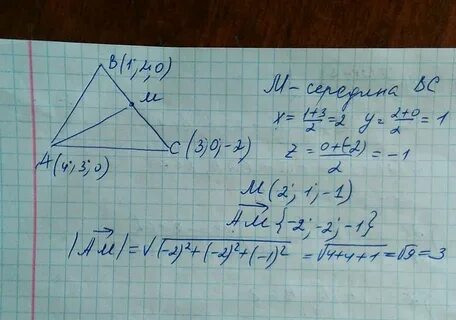 B(1; 2; 0)
M
C (3; 0; -2)
A(4; 3; 0)
M - середина BC
x = (1+3)/2 = 2 y = (2+0)/2 = 1
z = (0+(-2))/2 = -1
M (2; 1; -1)
AM {-2; -2; -1}
|AM| = √((-2)²+(-2)²+(-1)²) = √(4+4+1) = √9 = 3